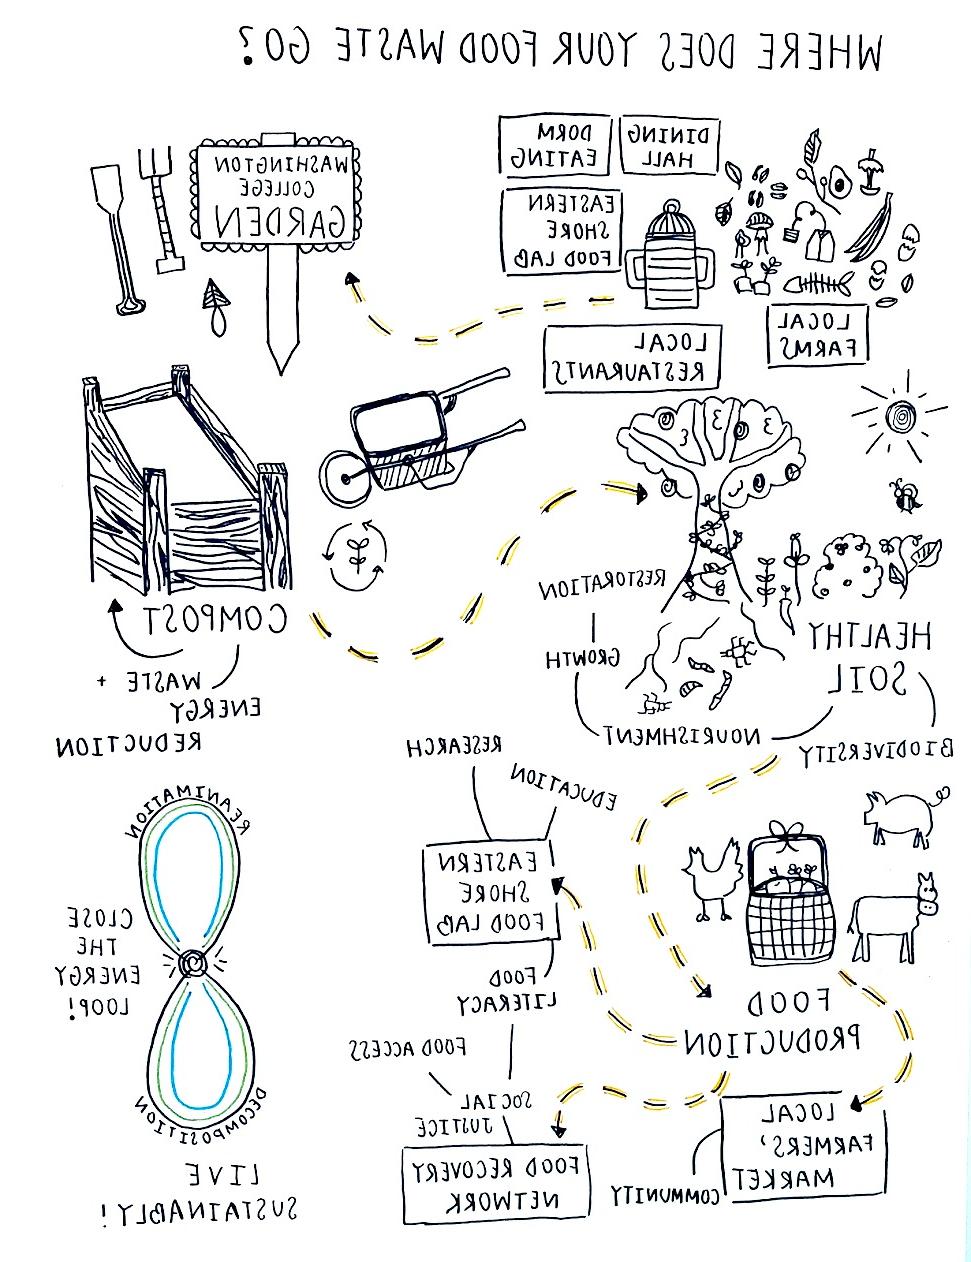 WHERE DOES YOUR FOOD WASTE GO?
DINING
HALL
DORM
EATING
EASTERN
SHORE
FOOD LAB
LOCAL
FARMS
LOCAL
RESTAURANTS
WASHINGTON
COLLEGE
GARDEN
COMPOST
WASTE +
ENERGY
REDUCTION
HEALTHY
SOIL
BIODIVERSITY
NOURISHMENT
GROWTH
RESTORATION
FOOD
PRODUCTION
LOCAL
FARMERS'
MARKET
COMMUNITY
RESEARCH
EDUCATION
EASTERN
SHORE
FOOD LAB
FOOD
LITERACY
FOOD ACCESS
SOCIAL
JUSTICE
FOOD RECOVERY
NETWORK
REANIMATION
CLOSE
THE
ENERGY
LOOP!
DECOMPOSITION
LIVE
SUSTAINABLY!